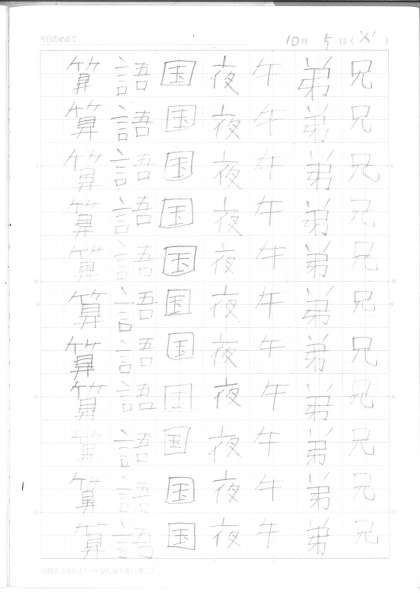 今日のめあて
10月5日(火)
兄兄兄兄兄兄兄兄兄兄兄
弟弟弟弟弟弟弟弟弟弟弟
午午午午午午午午午午午
夜夜夜夜夜夜夜夜夜夜夜
国国国国国国国国国国国
語語語語語語語語語語語
算算算算算算算算算算算